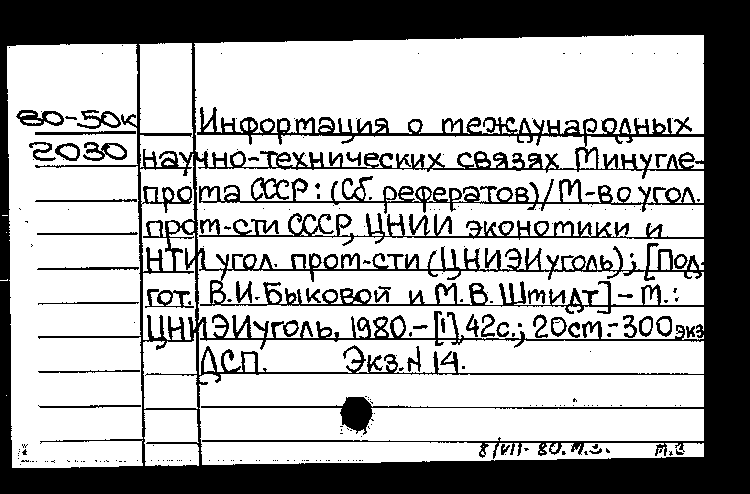 80-50к Информация о международных
2030 научно-технических связях Минугле-
прома СССР: (Сб. рефератов)/М-во угол.
пром-сти СССР, ЦНИИ экономики и
НТИ угол. пром-сти (ЦНИЭИуголь); [Под-
гот. В.И.Быковой и М.В.Шмидт]-М.:
ЦНИЭИуголь, 1980.-[1],42с.; 20см.-300экз
ДСП. Экз.N 14.
8/VII-80.М.З. М.З